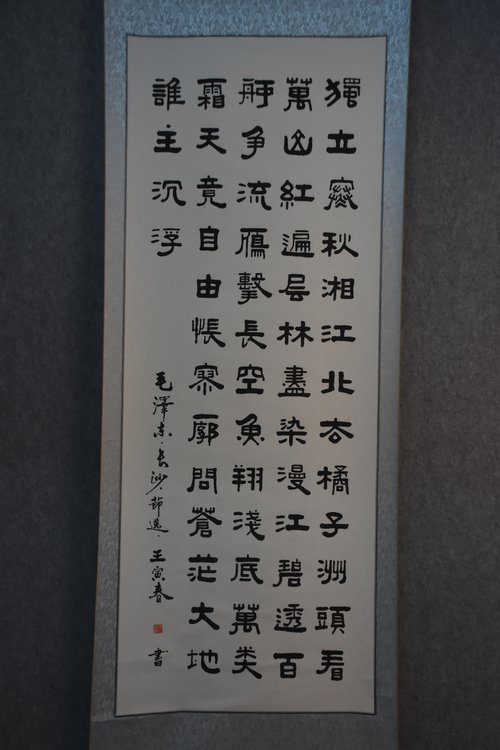 獨立寒秋湘江北去橘子洲頭看
萬山紅遍层林盡染漫江碧透百
舸争流鴈擊長空魚翔淺底萬类
霜天竟自由悵寥廓問蒼茫大地
誰主沉浮
毛澤东·長沙·節選·王寅春 書